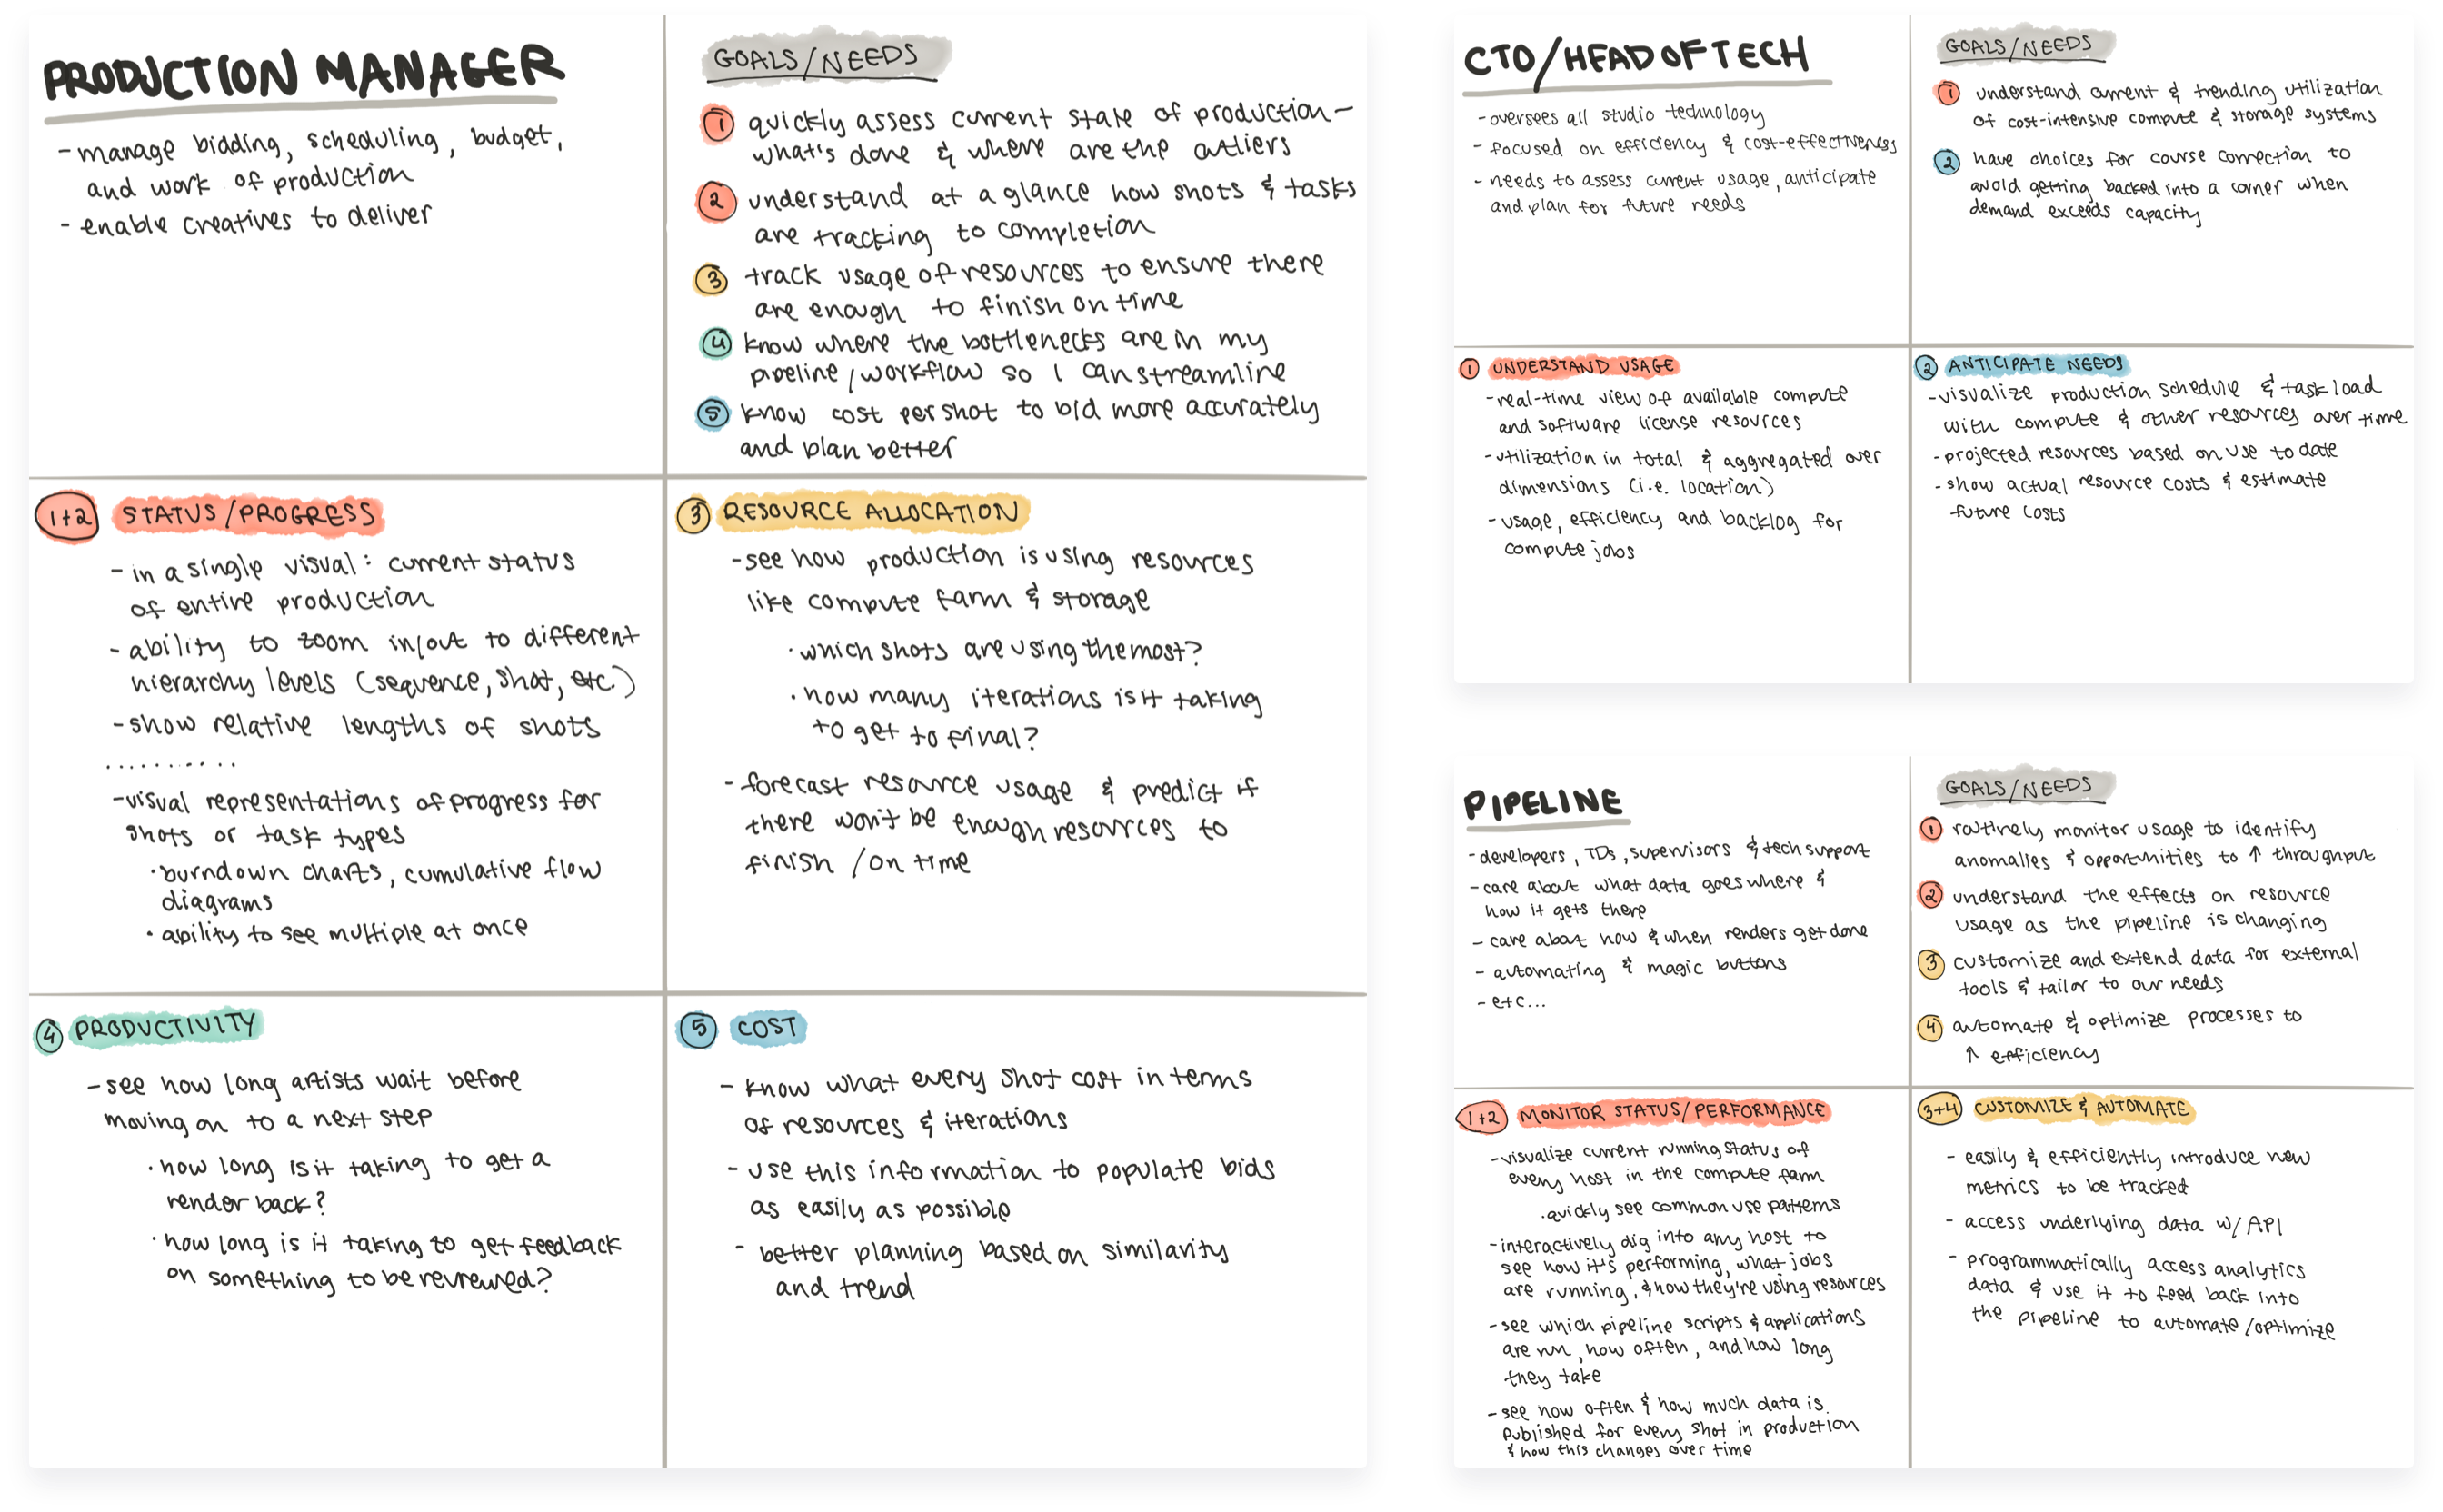 PRODUCTION MANAGER
- manage bidding, scheduling, budget,
and work of production
- enable creatives to deliver
GOALS/NEEDS
1 quickly assess current state of production -
what's done & where are the outliers
2 understand at a glance how shots & tasks
are tracking to completion
3 track usage of resources to ensure there
are enough to finish on time
4 know where the bottlenecks are in my
pipeline/workflow so I can streamline
5 know cost per shot to bid more accurately
and plan better
1+2 STATUS/PROGRESS
- in a single visual: current status
of entire production
- ability to zoom in/out to different
hierarchy levels (sequence, shot, etc.)
- show relative lengths of shots
...........
- visual representations of progress for
shots or task types
· burndown charts, cumulative flow
diagrams
· ability to see multiple at once
3 RESOURCE ALLOCATION
- see how production is using resources
like compute farm & storage
· which shots are using the most?
· how many iterations is it taking
to get to final?
- forecast resource usage & predict if
there won't be enough resources to
finish / on time
4 PRODUCTIVITY
- see how long artists wait before
moving on to a next step
· how long is it taking to get a
render back?
· how long is it taking to get feedback
on something to be reviewed?
5 COST
- know what every shot cost in terms
of resources & iterations
- use this information to populate bids
as easily as possible
- better planning based on similarity
and trend
CTO/HEAD OF TECH
- oversees all studio technology
- focused on efficiency & cost-effectiveness
- needs to assess current usage, anticipate
and plan for future needs
GOALS/NEEDS
1 understand current & trending utilization
of cost-intensive compute & storage systems
2 have choices for course correction to
avoid getting backed into a corner when
demand exceeds capacity
1 UNDERSTAND USAGE
- real-time view of available compute
and software license resources
- utilization in total & aggregated over
dimensions (i.e. location)
- usage, efficiency and backlog for
compute jobs
2 ANTICIPATE NEEDS
- visualize production schedule & task load
with compute & other resources over time
- projected resources based on use to date
- show actual resource costs & estimate
future costs
PIPELINE
- developers, TDs, supervisors & tech support
- care about what data goes where &
how it gets there
- care about how & when renders get done
- automating & magic buttons
- etc...
GOALS/NEEDS
1 routinely monitor usage to identify
anomalies & opportunities to ↑ throughput
2 understand the effects on resource
usage as the pipeline is changing
3 customize and extend data for external
tools & tailor to our needs
4 automate & optimize processes to
↑ efficiency
1+2 MONITOR STATUS/PERFORMANCE
- visualize current running status of
every host in the compute farm
· quickly see common use patterns
- interactively dig into any host to
see how it's performing, what jobs
are running, & how they're using resources
- see which pipeline scripts & applications
are run, how often, and how long
they take
- see how often & how much data is
published for every shot in production
& how this changes over time
3+4 CUSTOMIZE & AUTOMATE
- easily & efficiently introduce new
metrics to be tracked
- access underlying data w/ API
- programmatically access analytics
data & use it to feed back into
the pipeline to automate/optimize